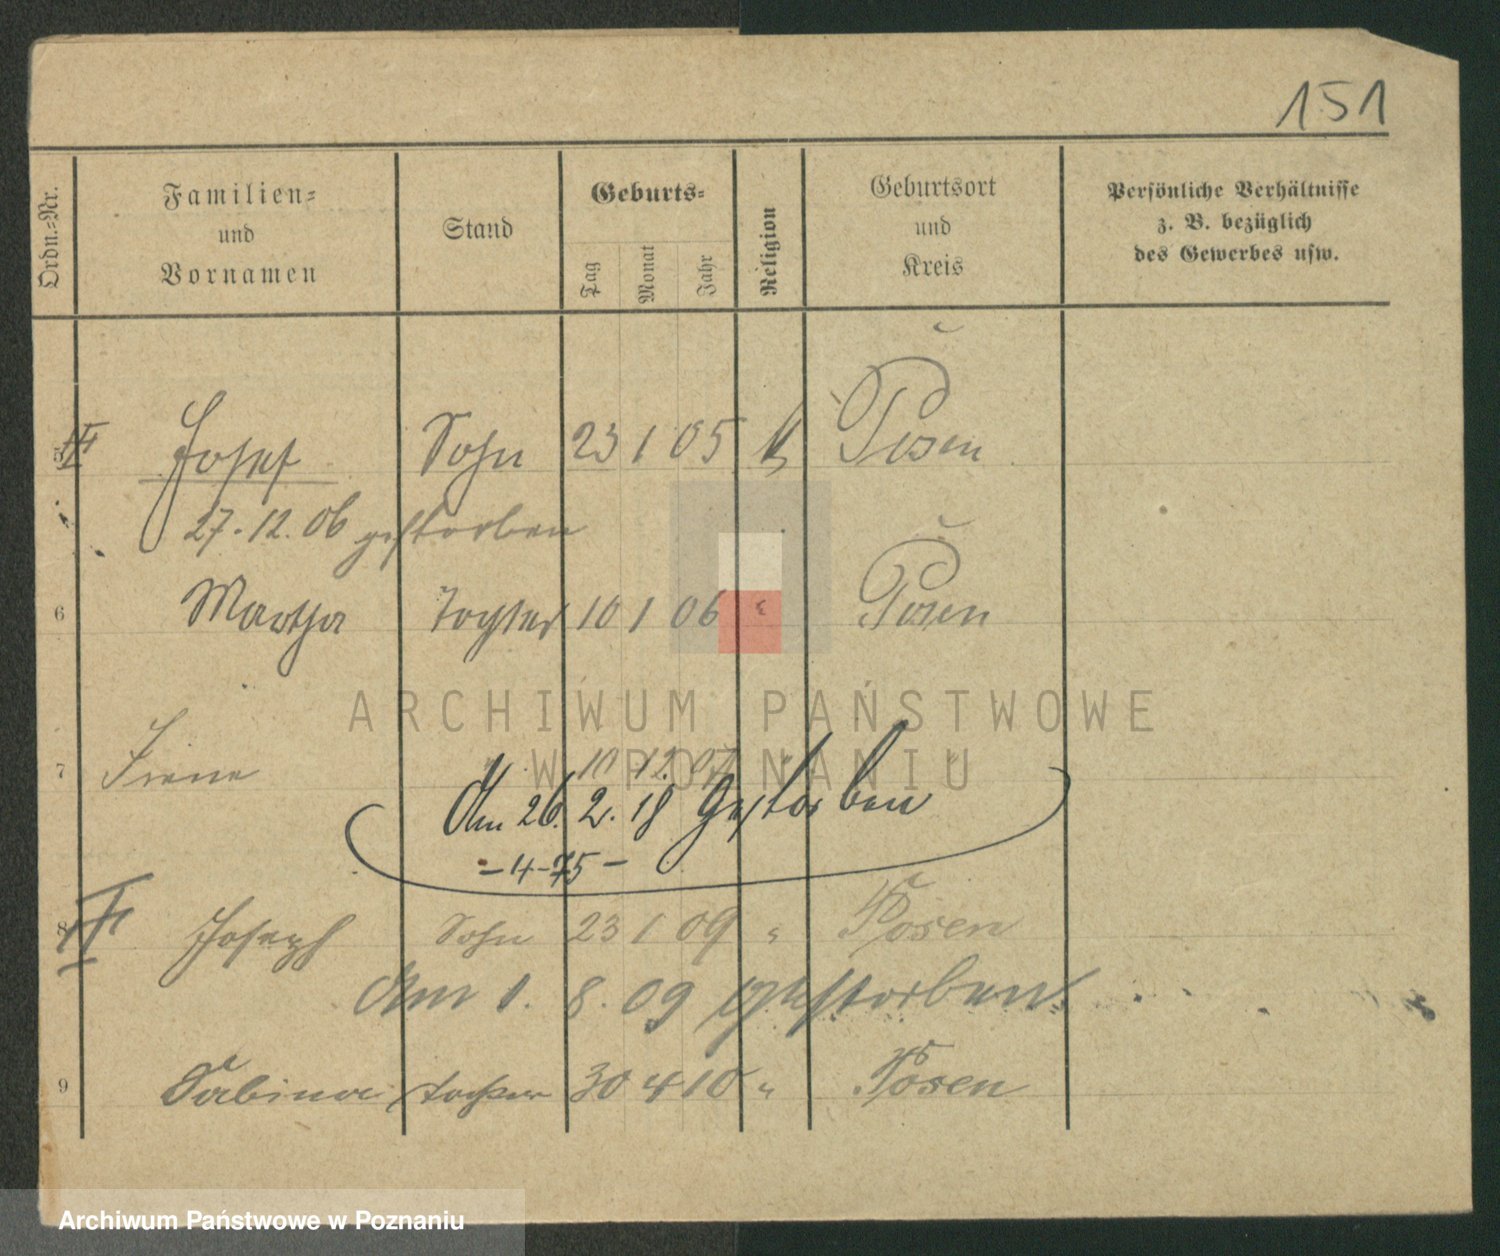 151
Ordn.-Nr.
Familien-
und
Vornamen
Stand
Geburts-
Tag
Monat
Jahr
Religion
Geburtsort
und
Kreis
Persönliche Verhältnisse
z. B. bezüglich
des Gewerbes usw.
5 Josef Sohn 23 1 05 K Posen
27. 12. 06 gestorben
6 Martha Tochter 10 1 06 " Posen
ARCHIWUM PAŃSTWOWE
W POZNANIU
7 Irene 10 12 07
Am 26. 2. 18 Gestorben
- 4-75 -
8 Joseph Sohn 23 1 09 " Posen
Am 1. 8. 09 gestorben
9 Sabina Tochter 30 4 10 " Posen
Archiwum Państwowe w Poznaniu